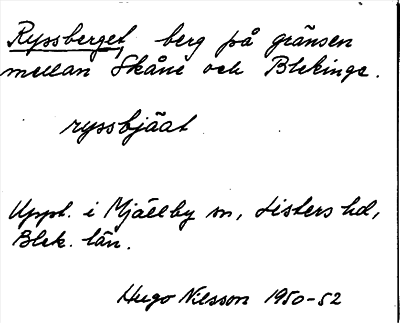 Ryssberget, berg på gränsen
mellan Skåne och Blekinge.
ryssbjäat
Uppt. i Mjällby sn, Listers hd,
Blek. län.
Hugo Nilsson 1950-52